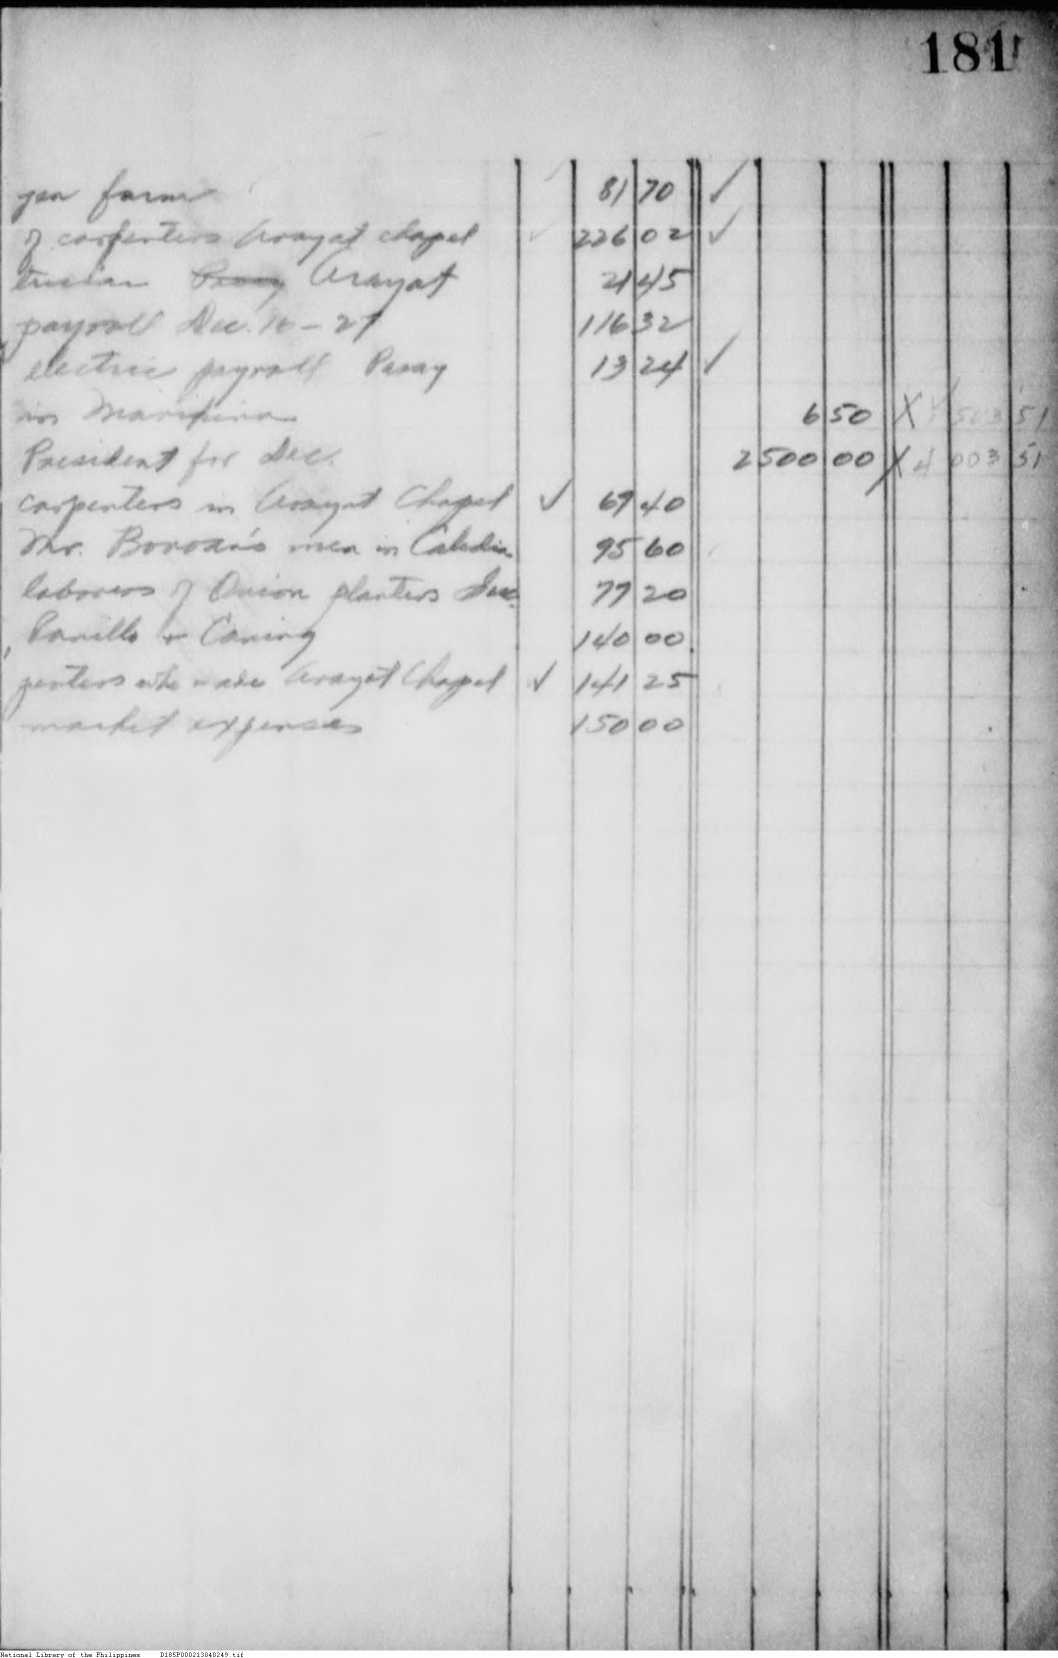 181
farm 81 70 ✓
of carpenters Arayat chapel ✓ 226 02 ✓
trician ~~Pasay~~ Arayat 21 45
payroll Dec. 16 - 27 116 32
electric payroll Pasay 13 24 ✓
in Marikina 6 50 X 503 51
President for Dec. 2500 00 X 4 003 51
carpenters in Arayat Chapel ✓ 69 40
Mr. men in 95 60
laborers of Onion planters 77 20
& Caning 140 00
penters who made Arayat Chapel ✓ 141 25
market expenses 150 00
National Library of the Philippines D185P000213040249.tif